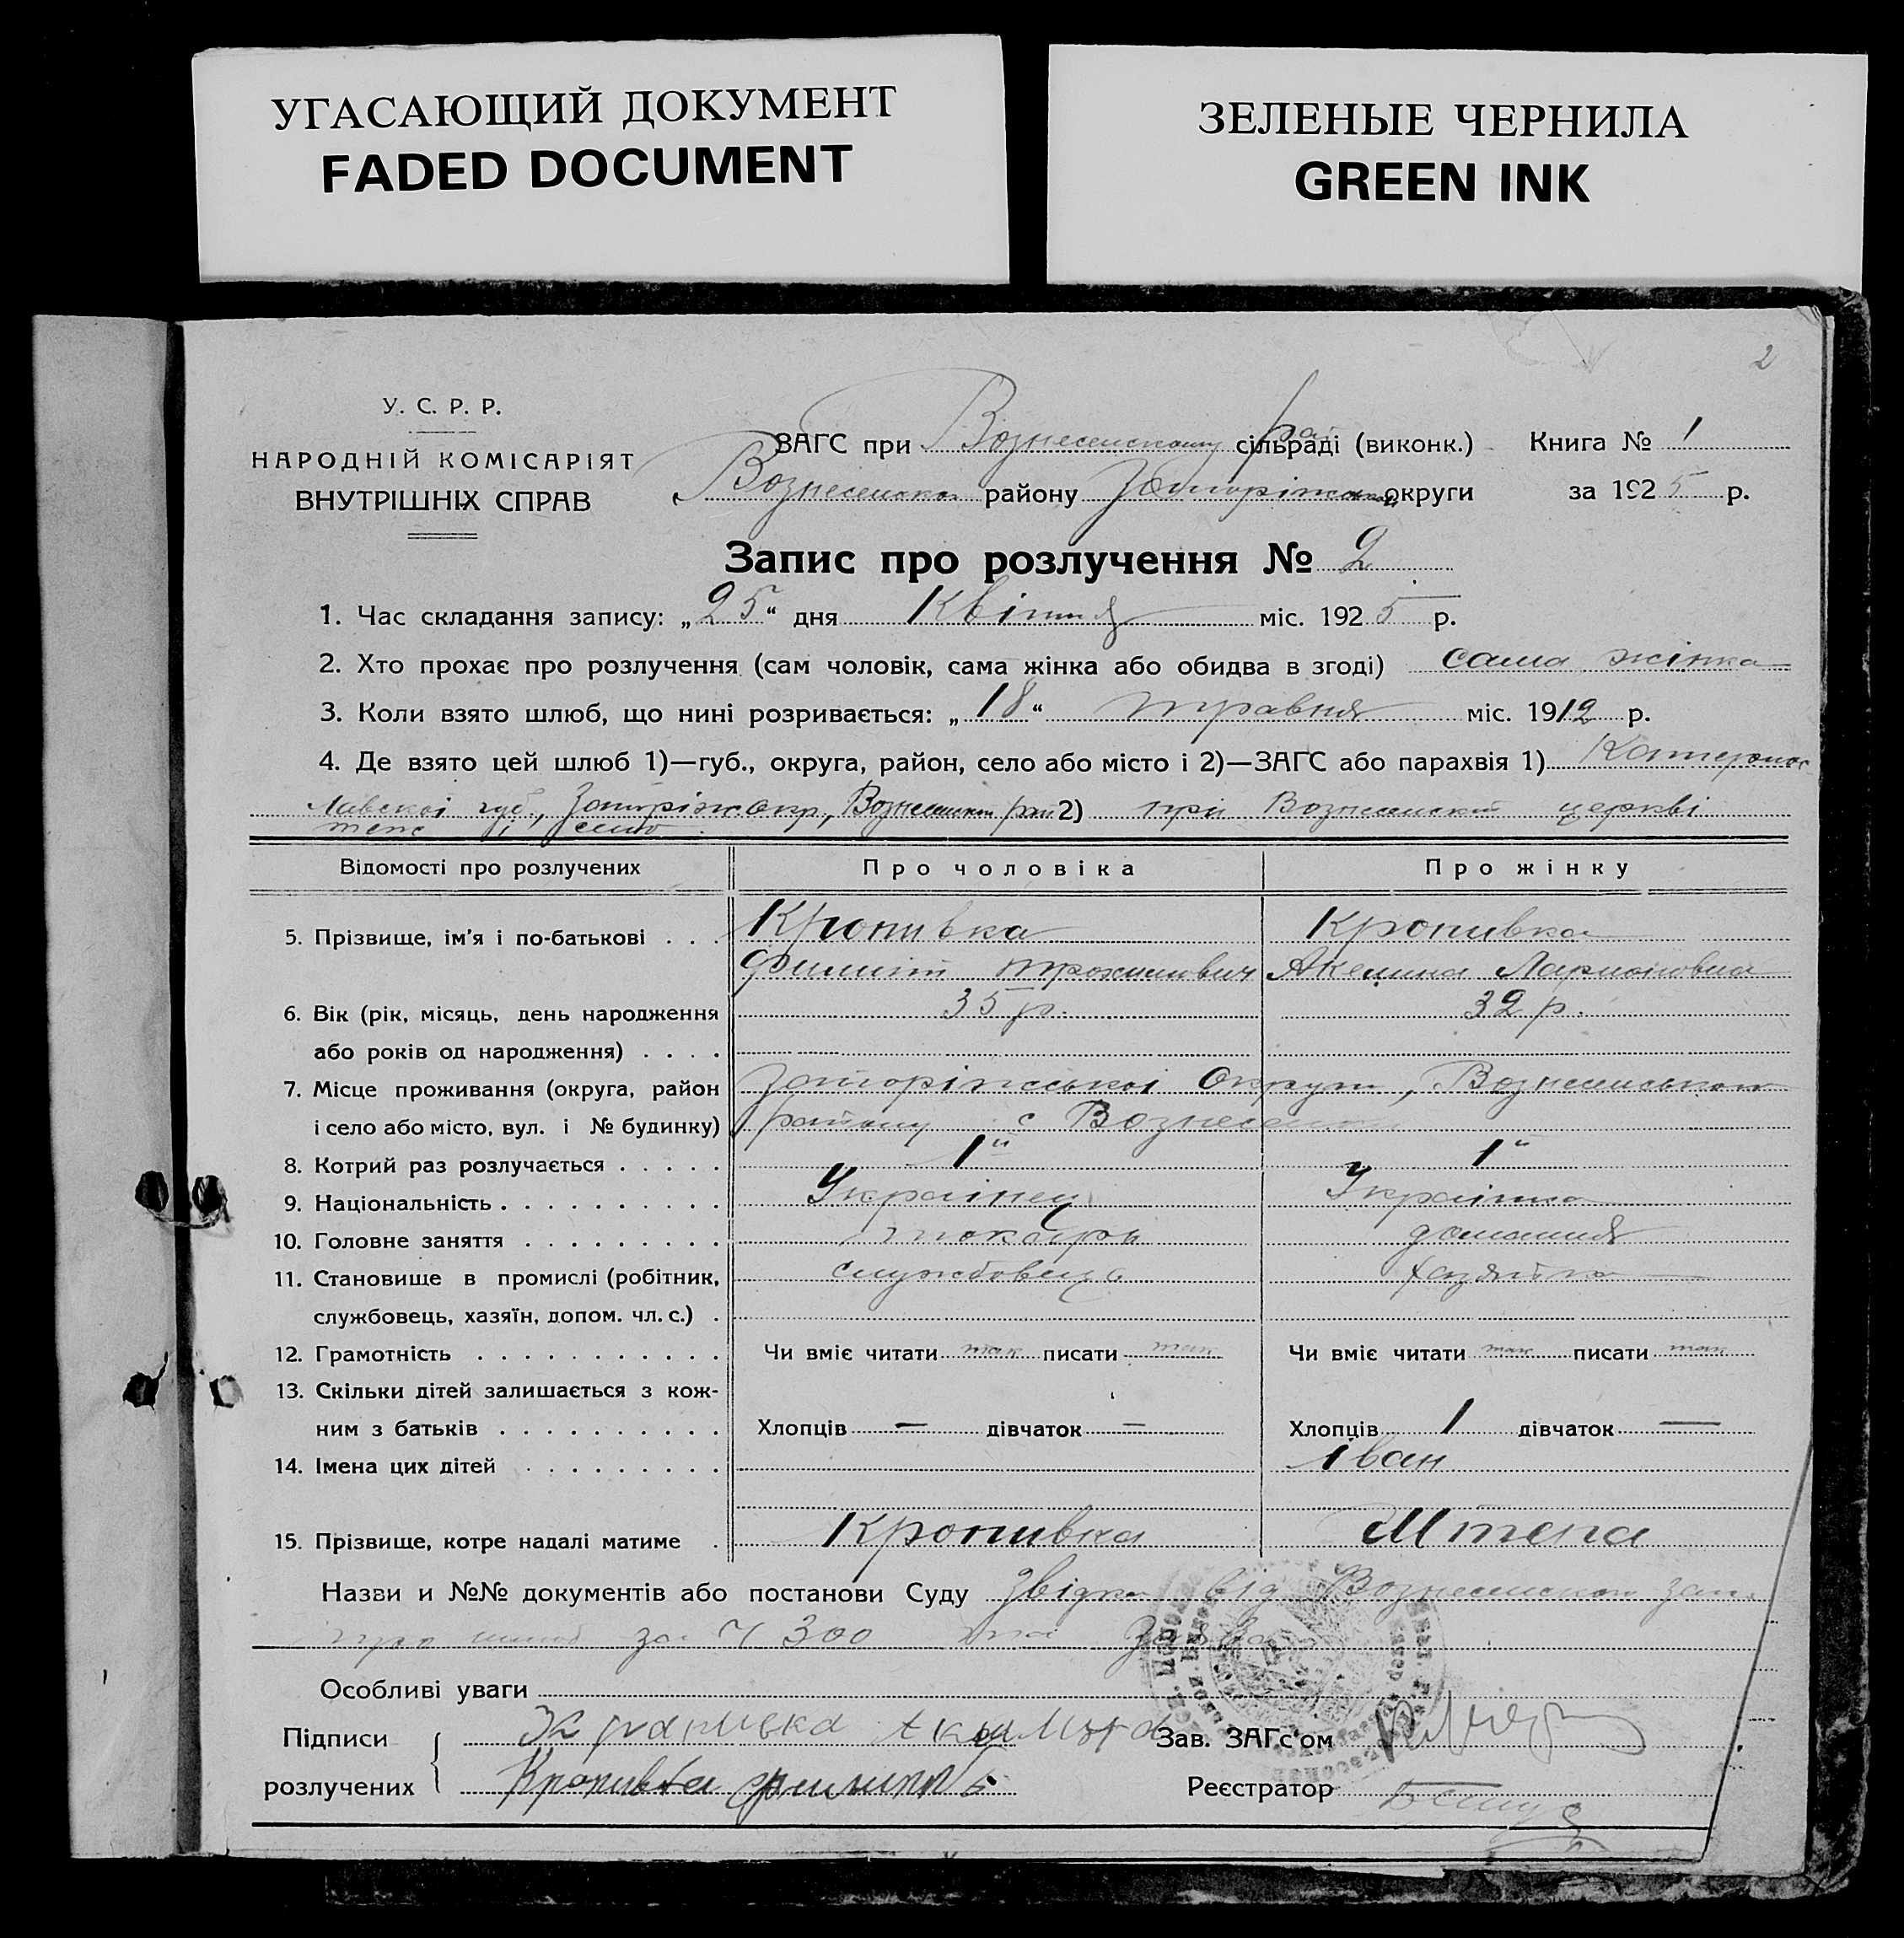 УГАСАЮЩИЙ ДОКУМЕНТ
FADED DOCUMENT
ЗЕЛЕНЫЕ ЧЕРНИЛА
GREEN INK
2
У. С. Р. Р.
НАРОДНІЙ КОМІСАРІЯТ
ВНУТРІШНІХ СПРАВ
ЗАГС при Вознесенському сільраді (виконк.) Книга № 1
Вознесенськ району Запоріжськ округи за 1925 р.
Запис про розлучення № 2
1. Час складання запису: „25“ дня Квітня міс. 1925 р.
2. Хто прохає про розлучення (сам чоловік, сама жінка або обидва в згоді) сама жінка
3. Коли взято шлюб, що нині розривається: „18“ травня міс. 1912 р.
4. Де взято цей шлюб 1)—губ., округа, район, село або місто і 2)—ЗАГС або парахвія 1) Катеринос
лавской губ., Запоріж окр, Вознесенськ рай 2) при Вознесенскій церкві
теж село
Відомості про розлучених Про чоловіка Про жінку
5. Прізвище, ім’я і по-батькові . . . Кропивка Кропивка
Филипп Трохимович Акелина Ларионовна
6. Вік (рік, місяць, день народження 35 р. 32 р.
або років од народження) . . . .
7. Місце проживання (округа, район Запоріжської Округи, Вознесенського
і село або місто, вул. і № будинку) району с Вознесенка
8. Котрий раз розлучається . . . . . 1й 1й
9. Національність . . . . . . . . . . Українец Українка
10. Головне заняття . . . . . . . . . токарь домашня
11. Становище в промислі (робітник, службовець хазяйка
службовець, хазяїн, допом. чл. с.) .
12. Грамотність . . . . . . . . . . . Чи вміє читати так писати так Чи вміє читати так писати так
13. Скільки дітей залишається з кож-
ним з батьків . . . . . . . . . . Хлопців — дівчаток — Хлопців 1 дівчаток —
14. Імена цих дітей . . . . . . . . . Іван
15. Прізвище, котре надалі матиме . Кропивка Штепа
Назви и №№ документів або постанови Суду Звідка від Вознесенськ
про шлюб за Ч 300
Особливі уваги
Підписи Кропивка Зав. ЗАГс‘ом
розлучених Кропивка Филипп Реєстратор